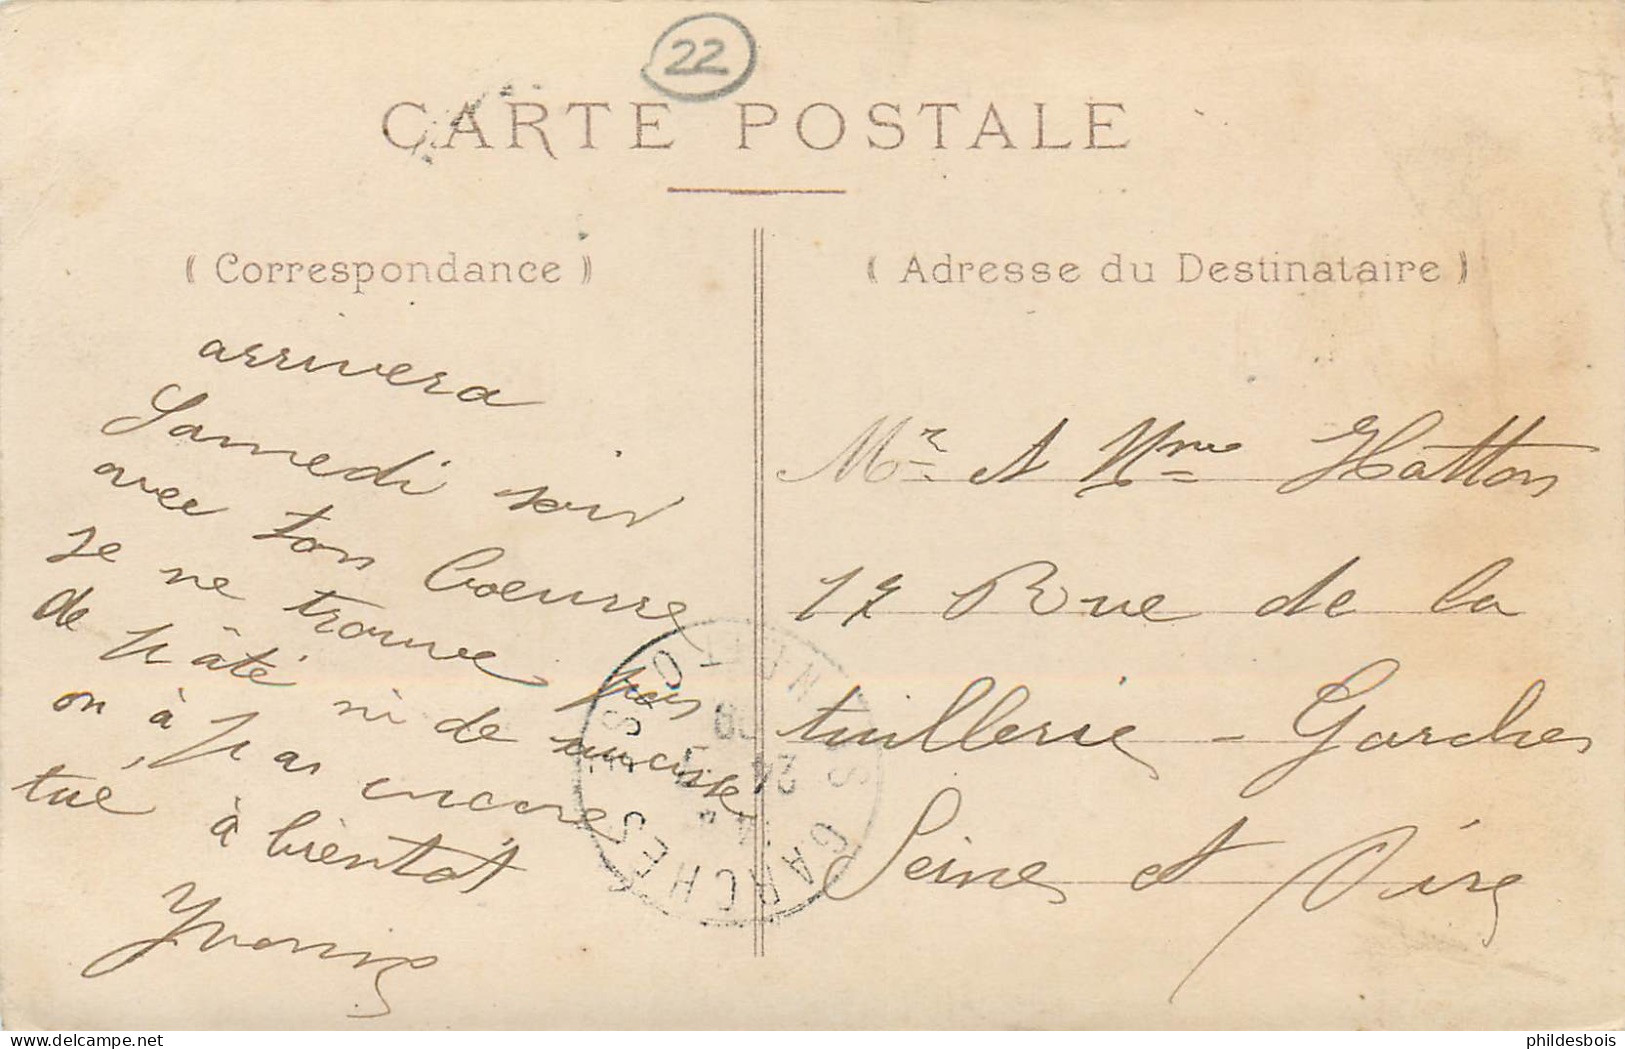 22
CARTE POSTALE
( Correspondance )
( Adresse du Destinataire )
arrivera
Samedi soir
avec ton beurre
je ne trouve pas
de pâté ni de
on à pas encore
tué, à bientôt
Yvonne
Mr & Mme Hatton
17 Rue de la
tuillerie - Garches
Seine et Oise
GARCHES
24
09
phildesbois
delcampe.net